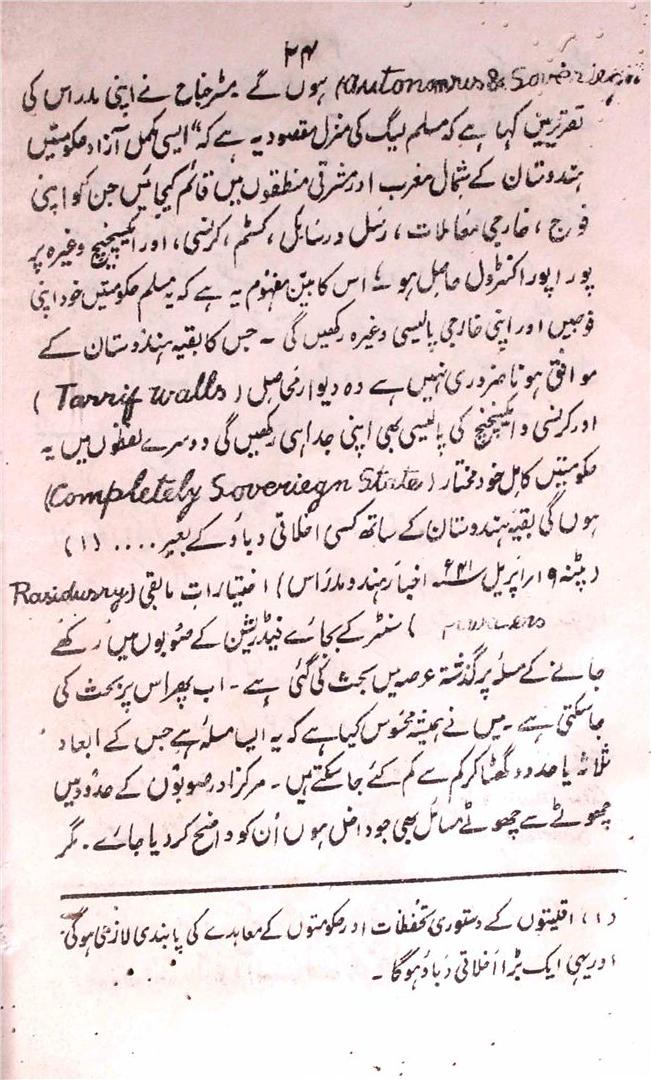 ۲۴
(Autonomrus & Soveriegn) ہوں گے مسٹر جناح نے اپنی مدراس کی
تقریر میں کہا ہے کہ مسلم لیگ کی منزل مقصود یہ ہے کہ “ایسی مکمل آزاد حکومتیں
ہندوستان کے شمال مغرب اور مشرقی منطقوں میں قائم کیجائیں جن کو اپنی
فوج ، خارجی معاملات ، رسل و رسایل ، کسٹم ، کرنسی ، اور ایکسچینج وغیرہ پر
پورا پورا کنٹرول حاصل ہو“ اس کا بین مفہوم یہ ہے کہ یہ مسلم حکومتیں خود اپنی
فوجیں اور اپنی خارجی پالیسی وغیرہ رکھیں گی ۔ جس کا بقیہ ہندوستان کے
موافق ہونا ضروری نہیں ہے وہ دیوار محاصل (Tarrif walls)
اور کرنسی و ایکسچنج کی پالیسی بھی اپنی جدا ہی رکھیں گی دوسرے لفظوں میں یہ
حکومتیں کامل خود مختار (Completely Soveriegn State)
ہوں گی بقیہ ہندوستان کے ساتھ کسی اخلاقی دباؤ کے بغیر .... (۱)
(پٹنہ ۱۹ اپریل ۴۱ء اخبار ہندو مدراس) اختیارات مابقی (Rasidusry
powers) سنٹر کے بجائے فیڈریشن کے صوبوں میں رکھے
جانے کے مسلہ پر گذشتہ عرصہ میں بحث کی گئی ہے ۔ اب پھر اس پر بحث کی
جا سکتی ہے ۔ میں نے ہمیشہ محسوس کیا ہے کہ یہ ایسا مسلہ ہے جس کے ابعاد
ثلاثہ یا حدود گھٹا کر کم سے کم کئے جا سکتے ہیں ۔ مرکز اور صوبوں کے حدود میں
چھوٹے سے چھوٹے مسائل بھی جو داخل ہوں اُن کو واضح کر دیا جائے ۔ مگر
(۱) اقلیتوں کے دستوری تحفظات اور حکومتوں کے معاہدے کی پابندی لازمی ہوگی
اور یہی ایک بڑا اخلاقی دباؤ ہوگا ۔